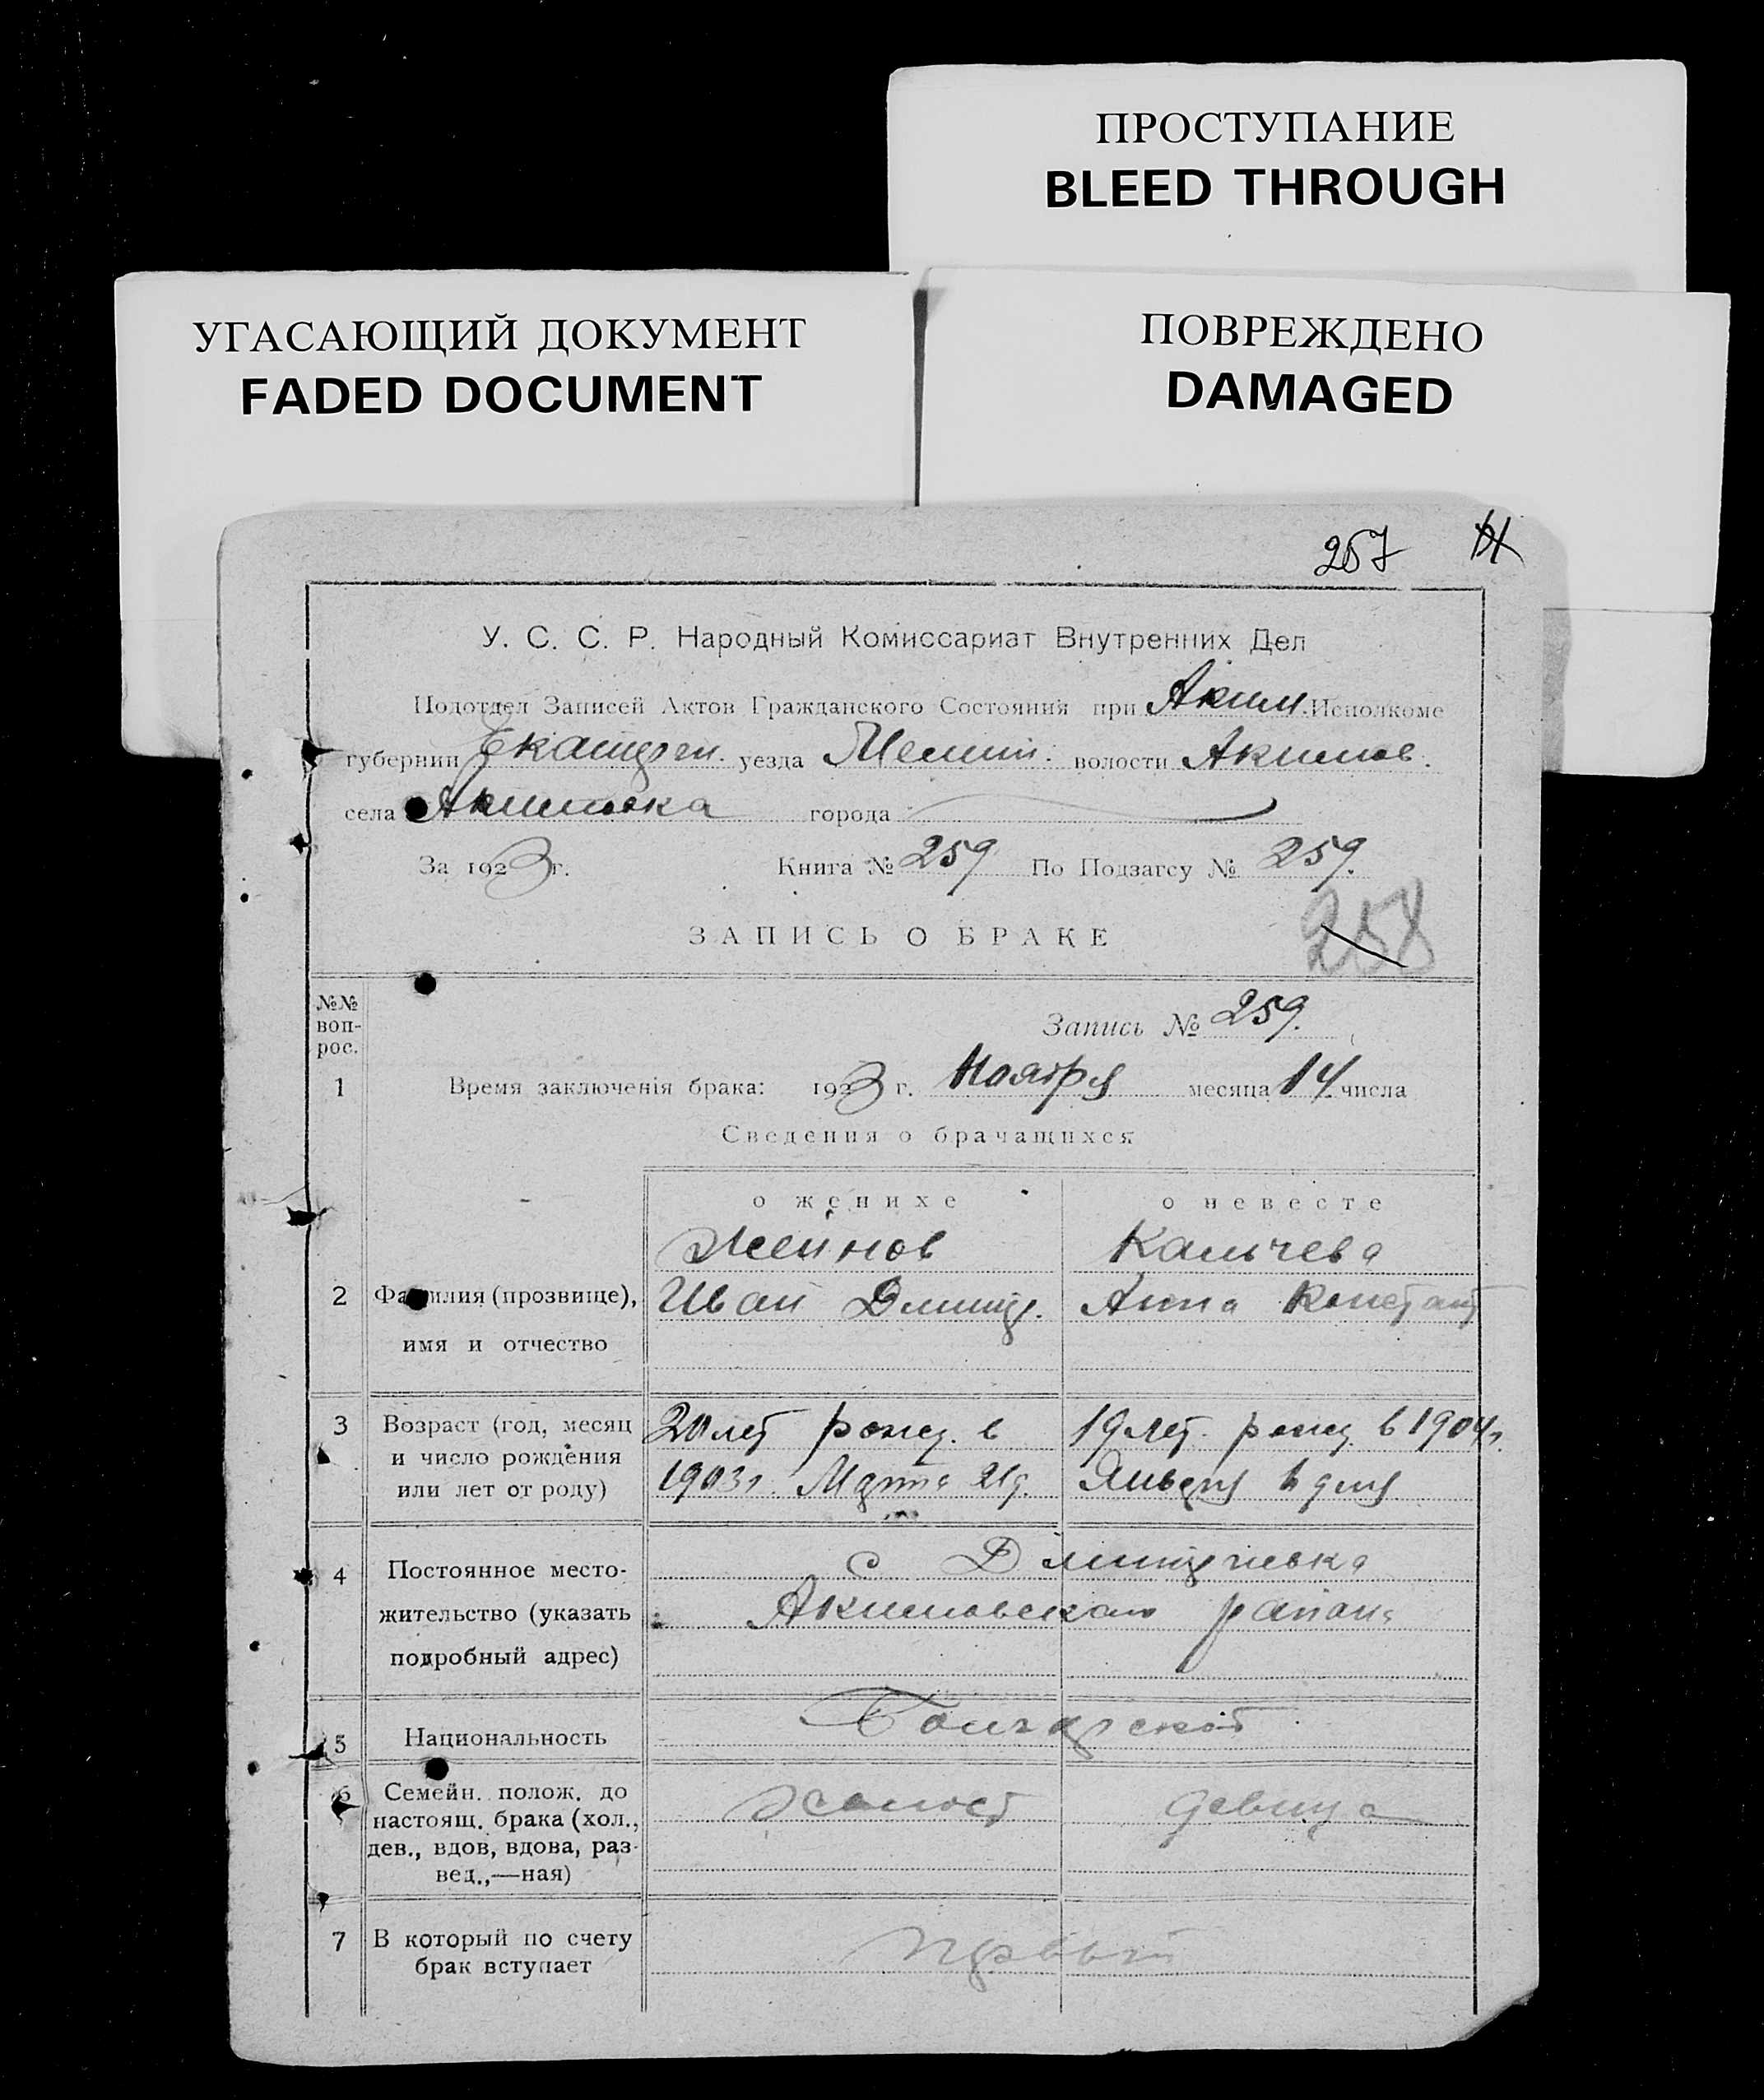 ПРОСТУПАНИЕ
BLEED THROUGH
УГАСАЮЩИЙ ДОКУМЕНТ
FADED DOCUMENT
ПОВРЕЖДЕНО
DAMAGED
257
У. С. С. Р. Народный Комиссариат Внутренних Дел
Подотдел Записей Актов Гражданского Состояния при Аким. Исполкоме
губернии Екатерин. уезда Мелит. волости Акимов.
села Акимовка города
За 1923 г. Книга № 259 По Подзагсу № 259.
258
ЗАПИСЬ О БРАКЕ
№№ воп-рос.
Запись № 259.
1 Время заключенія брака: 1923 г. Ноября месяца 14 числа
Сведения о брачащихся
о женихе о невесте
Желнов Калчева
2 Фамилия (прозвище), Иван Дмитр. Анна Констант
имя и отчество
3 Возраст (год, месяц 20 лет рожд. в 19 лет. рожд. в 1904 г.
и число рождения
или лет от роду) 1903 г. Марта 21 д. Января дня
4 Постоянное место- с Дмитриевка
жительство (указать Акимовского района
подробный адрес)
5 Национальность Болгарской
6 Семейн. полож. до холост девица
настоящ. брака (хол.,
дев., вдов, вдова, раз-
вед.,—ная)
7 В который по счету первый
брак вступает